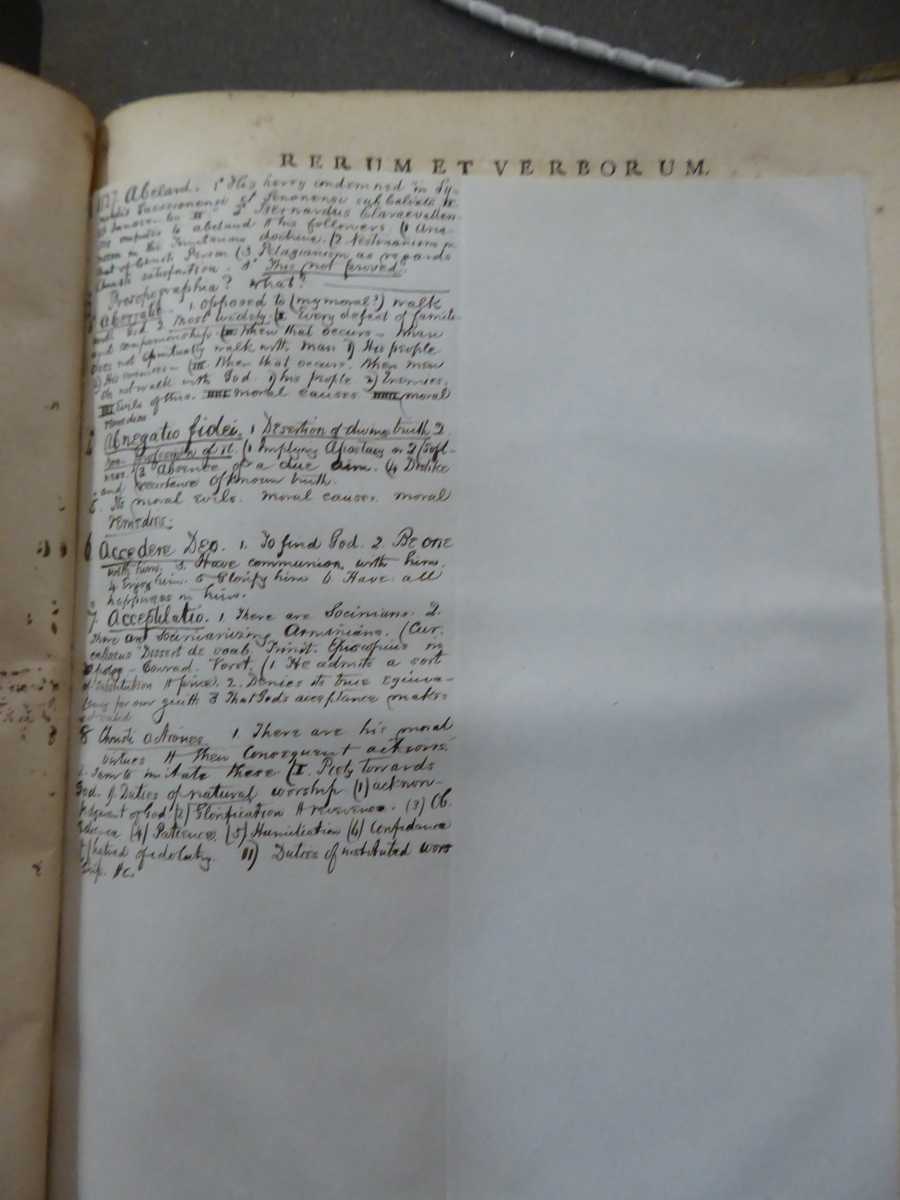 RERUM ET VERBORUM.
Abelard. 1° His heresy condemned in Sy-
Suessionensi et Senonensi sub Calixto II.
II° 2° Bernardus Claraevallen-
to abelard & his followers (1 Aria-
nism in the Trinitarian doctrine. (2 Nestorianism in
that of Christs Person (3 Pelagianism as regards
Christs satisfaction. 4° This not proved.
Prosopographia? what?
Aberratio. 1. opposed to (my moral?) walk
with God 2. most widely. (I Every defect of famili-
and companionship. (II When that occurs – Where
does not spiritually walk with man 1) His people
2) His enemies – (III. When that occurs. When men
do not walk with God. 1) his people 2) Enemies.
Evils of this. IIII moral causes moral
remedies
Abnegatio fidei. 1 Desertion of divine truth 2.
non profession of it. (1 Implying Apostacy or 2/Soft-
ness. (3 Absence of a due aim. (4 Dislike
and resistance of known truth.
5. Its moral evils. moral causes. moral
remedies.
6 Accedere Deo. 1. To find God. 2. Be one
with him. 3. Have communion with him.
4 Enjoy him. 5 Glorify him 6 Have all
happiness in him.
7. Acceptilatio. 1. There are Socinians. 2.
There are Socinianizing Arminians. (Cur-
cellaeus Dissert de vocab. Trinit. Episcopius in
Conrad. Vorst. (1. He admits a sort
of substitution & price). 2. Denies its true equiva-
lency for our guilt 3 That Gods acceptance makes
8 Christi actiones. 1. There are his moral
virtues & then consequent actions.
to imitate these (I. Piety towards
God. 1 Duties of natural worship (1) acknow-
ledgment of God (2) Glorification & reverence. (3) Ob-
edience (4) Patience (5) Humiliation (6) Confidence
7) hatred of idolatry. II) Duties of instituted wor-
ship. &c.